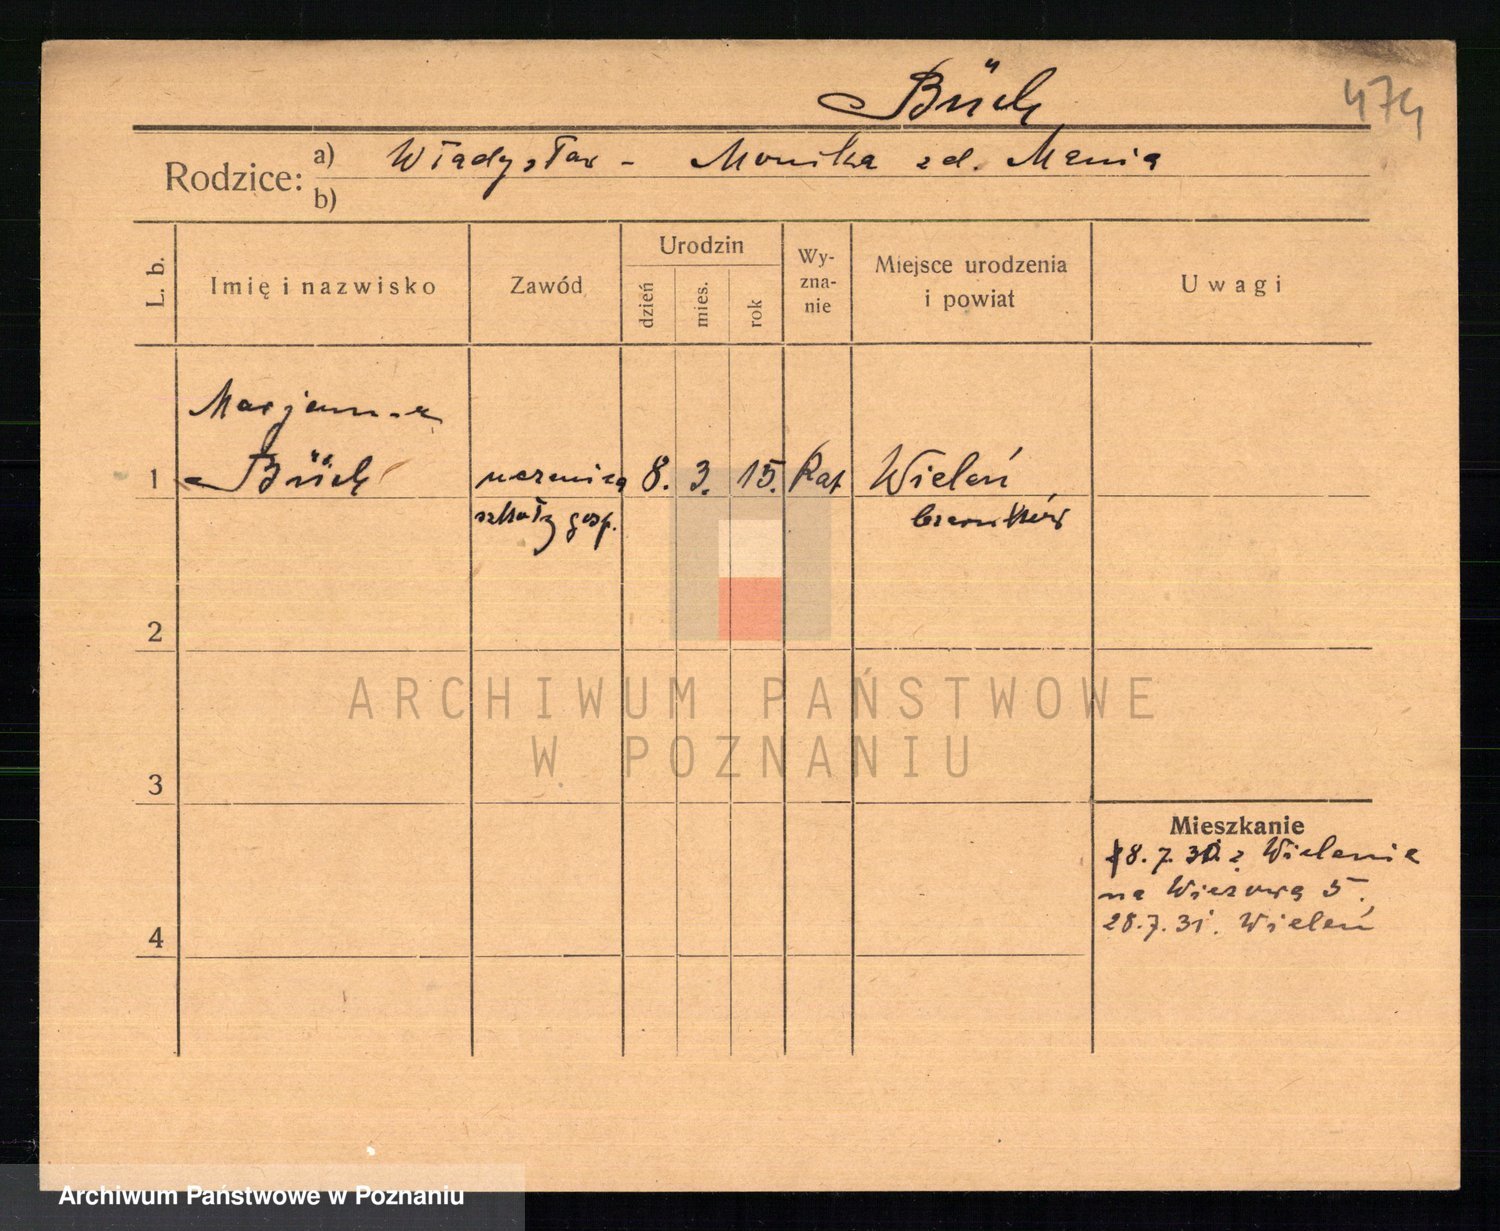 Büch
474
Rodzice:
a) Władysław - Monika zd. Mania
b)
L. b.
Imię i nazwisko
Zawód
Urodzin
dzień
mies.
rok
Wy-
zna-
nie
Miejsce urodzenia
i powiat
Uwagi
Marjanna
1 Büch uczenica 8. 3. 15. Kat Wieleń
szkoły gosp. Czarnków
2
3
4
Mieszkanie
28.7.30. z Wielenia
na Wieżową 5.
28.7.31. Wieleń
ARCHIWUM PAŃSTWOWE
W POZNANIU
Archiwum Państwowe w Poznaniu